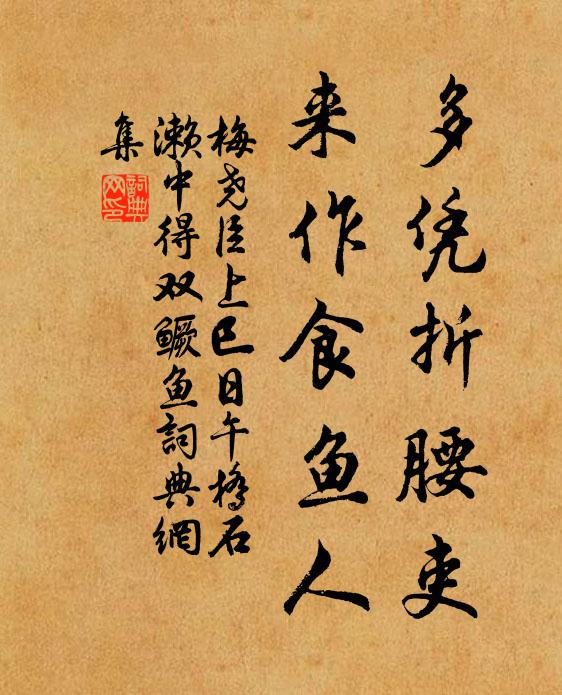 多凭折腰吏
来作食鱼人
梅尧臣上巳日午桥石
濑中得双鳜鱼詞典網
集
詞典
网印